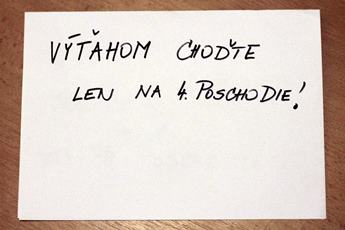 VÝŤAHOM CHOĎTE
LEN NA 4. POSCHODIE!